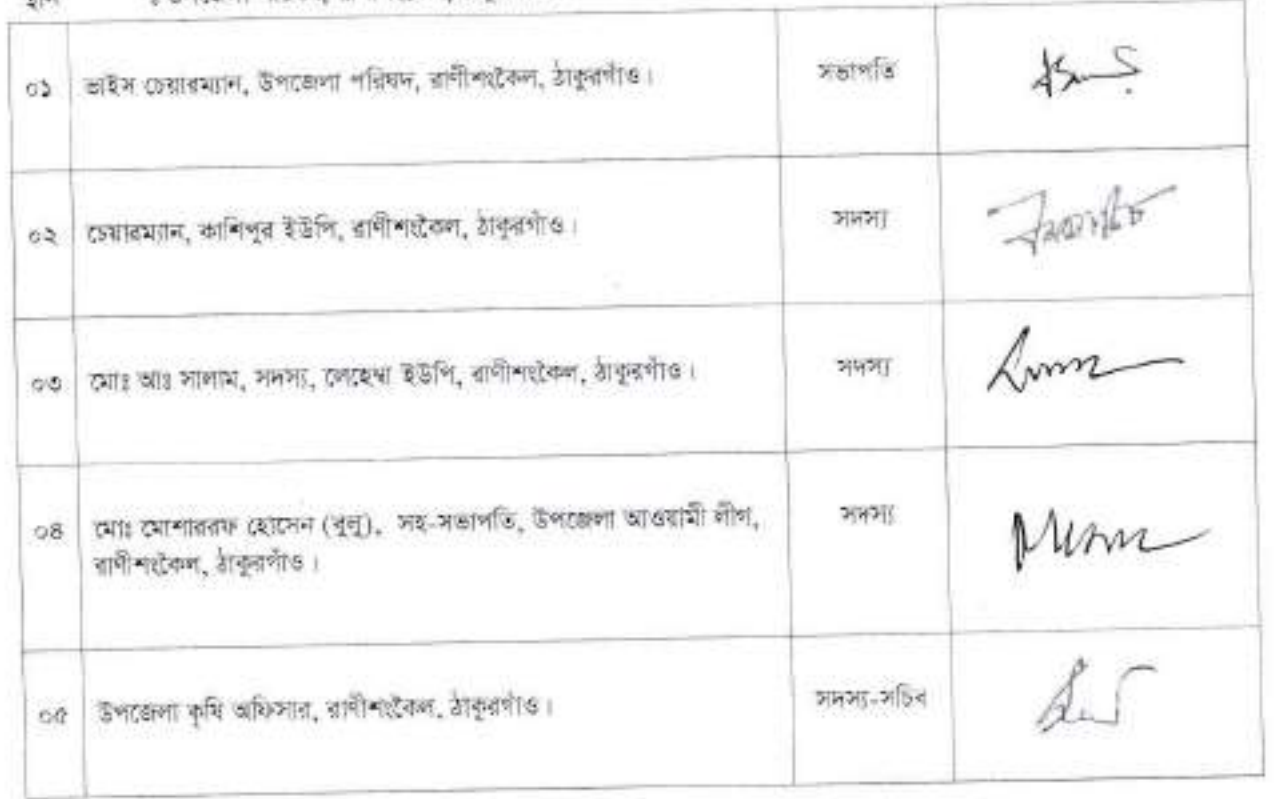 স্থান : উপজেলা পরিষদ,
০১ ভাইস চেয়ারম্যান, উপজেলা পরিষদ, রাণীশংকৈল, ঠাকুরগাঁও। সভাপতি
০২ চেয়ারম্যান, কাশিপুর ইউপি, রাণীশংকৈল, ঠাকুরগাঁও। সদস্য
০৩ মোঃ আঃ সালাম, সদস্য, লেহেম্বা ইউপি, রাণীশংকৈল, ঠাকুরগাঁও। সদস্য
০৪ মোঃ মোশাররফ হোসেন (বুলু), সহ-সভাপতি, উপজেলা আওয়ামী লীগ, সদস্য
রাণীশংকৈল, ঠাকুরগাঁও।
০৫ উপজেলা কৃষি অফিসার, রাণীশংকৈল, ঠাকুরগাঁও। সদস্য-সচিব